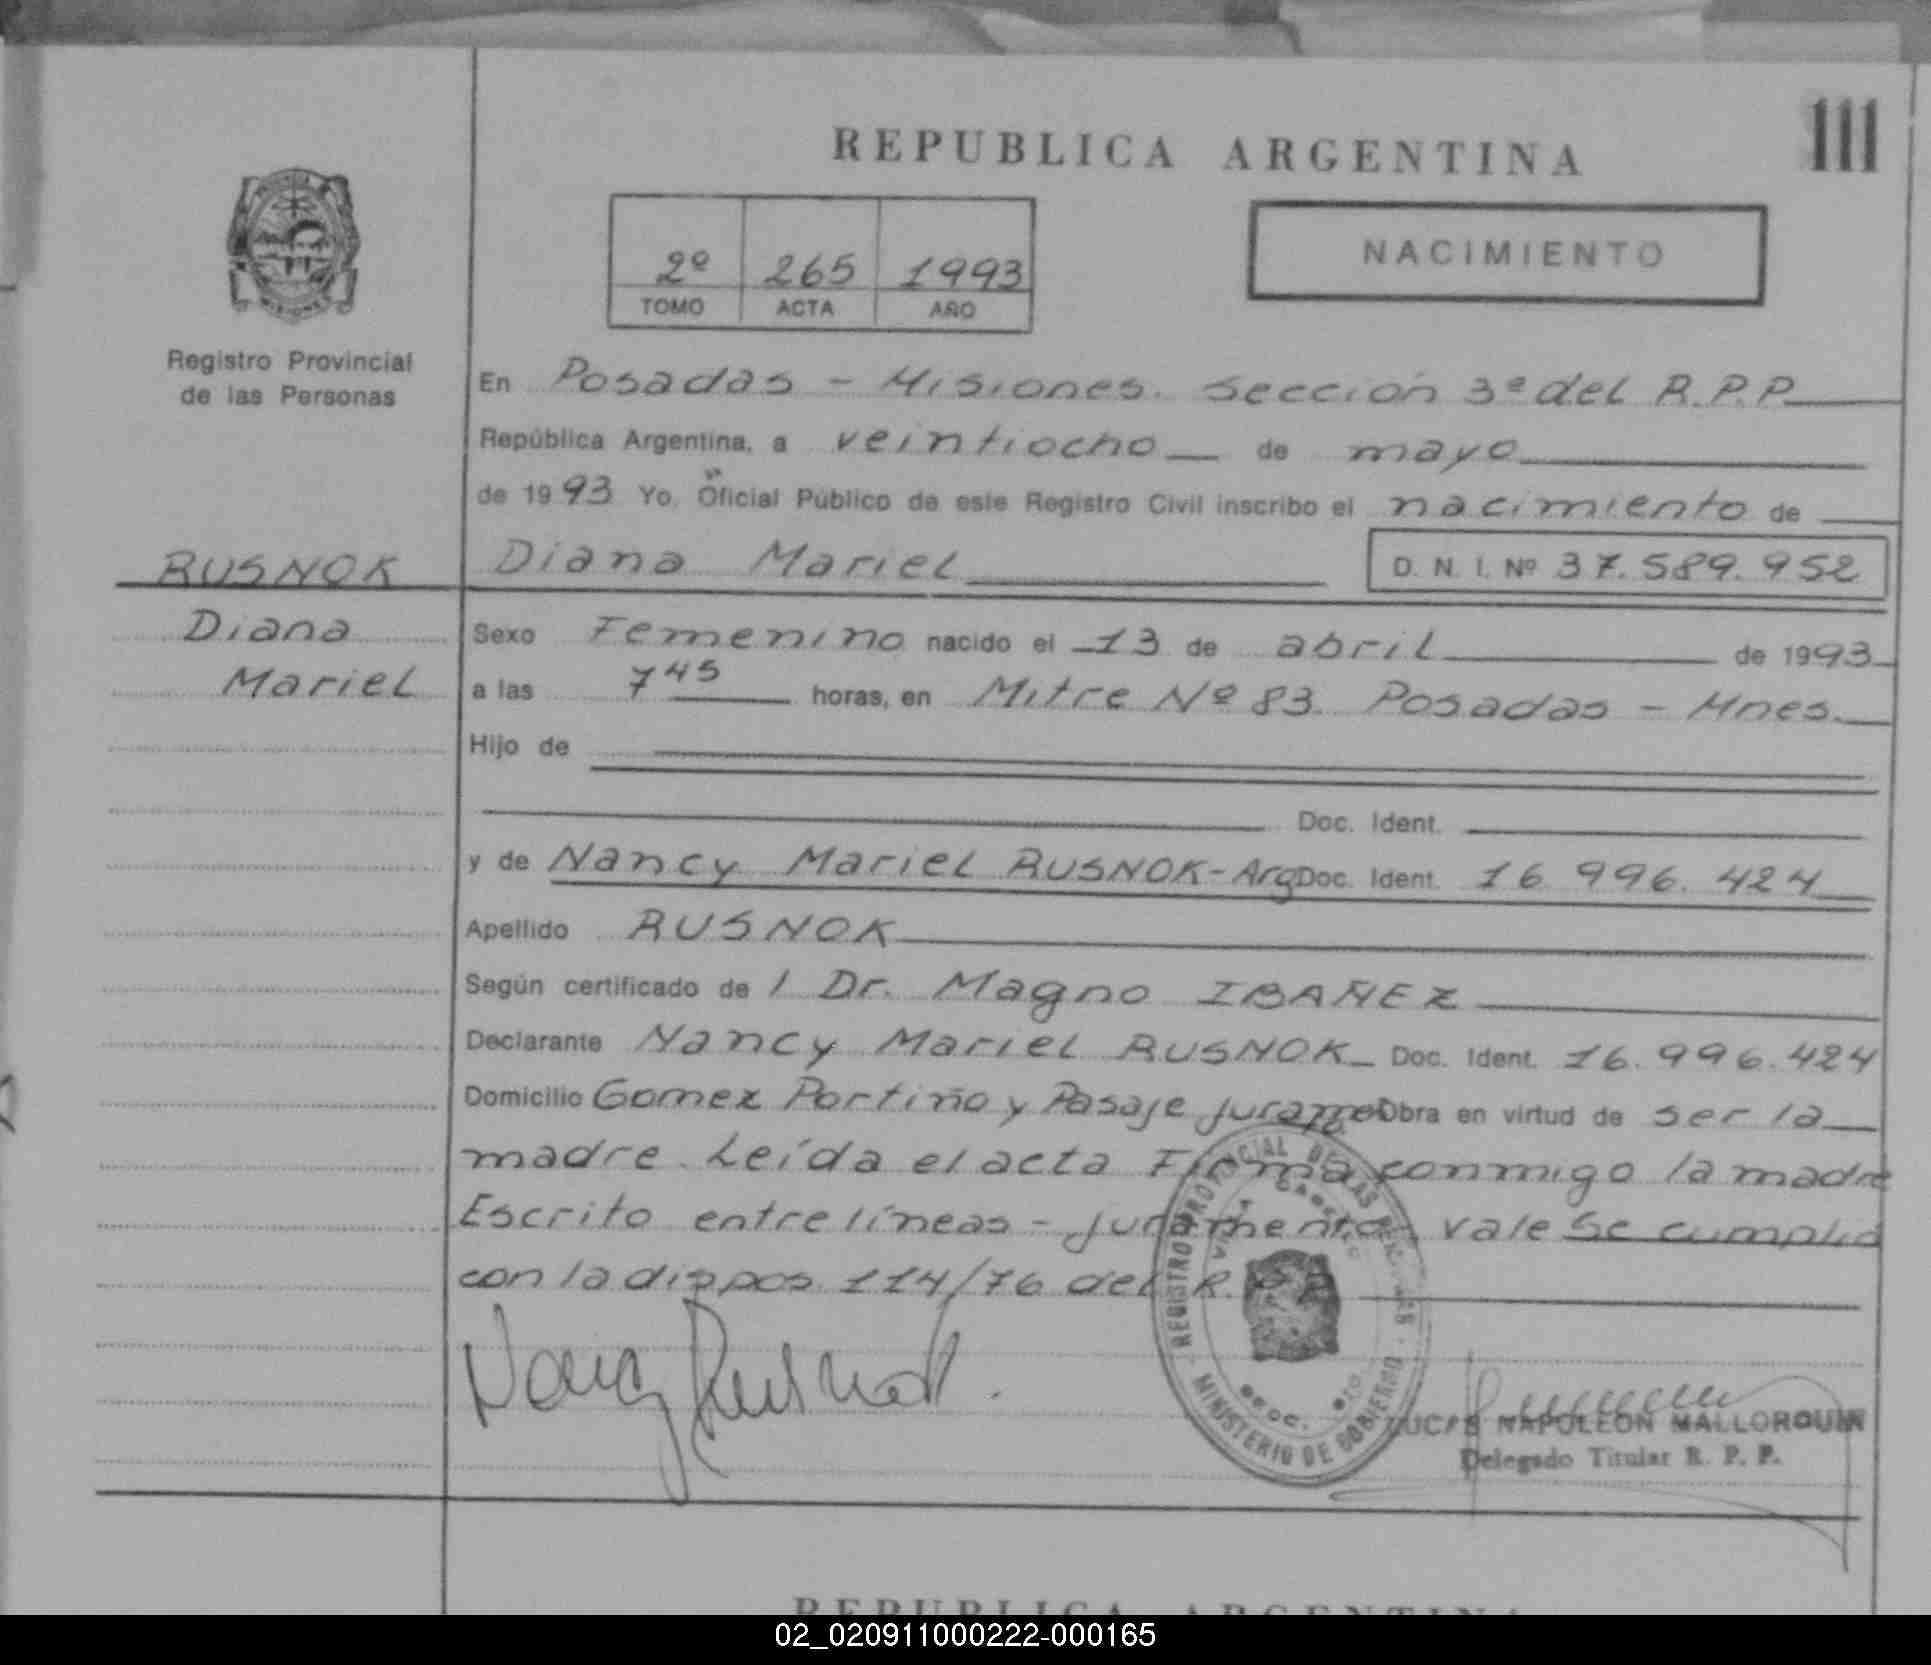 REPUBLICA ARGENTINA
111
2º 265 1993
TOMO ACTA AÑO
NACIMIENTO
Registro Provincial
de las Personas
En Posadas - Misiones. Sección 3ª del R.P.P.
República Argentina, a veintiocho de mayo
de 1993 Yo, Oficial Público de este Registro Civil inscribo el nacimiento de
RUSNOK Diana Mariel D. N. I. Nº 37.589.952
Diana
Mariel
Sexo Femenino nacido el 13 de abril de 1993
a las 7 45 horas, en Mitre Nº 83. Posadas - Mnes.
Hijo de
Doc. Ident.
y de Nancy Mariel RUSNOK - Arg Doc. Ident. 16.996.424
Apellido RUSNOK
Según certificado de l Dr. Magno IBAÑEZ
Declarante Nancy Mariel RUSNOK - Doc. Ident. 16.996.424
Domicilio Gomez Portiño y Pasaje Obra en virtud de ser la
madre. Leída el acta Firma conmigo la madre
Escrito entre líneas - juramento - vale Se cumplió
con la dispos. 114/76 del R.P.P.
Nancy Rusnok
REGISTRO PROVINCIAL DE LAS PERSONAS
MINISTERIO DE GOBIERNO
LUCAS NAPOLEON MALLORQUIN
Delegado Titular R. P. P.
REPUBLICA ARGENTINA
02_020911000222-000165